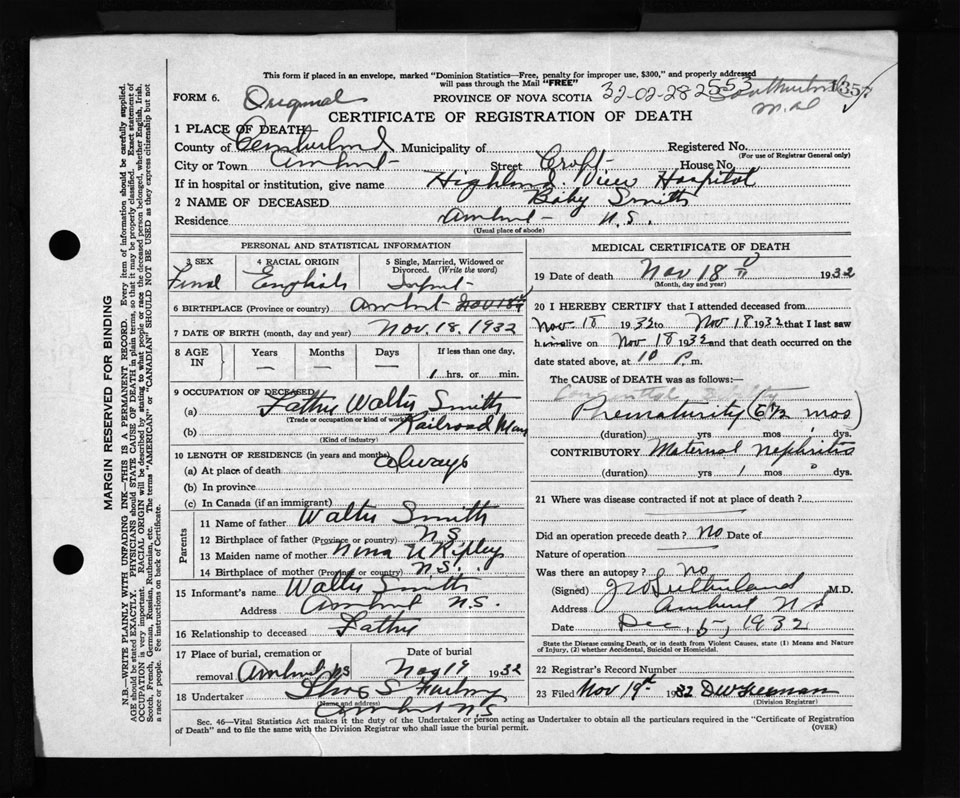 This form if placed in an envelope, marked "Dominion Statistics—Free, penalty for improper use, $300," and properly addressed
will pass through the Mail "FREE"
FORM 6. Original PROVINCE OF NOVA SCOTIA 32-02-282553
CERTIFICATE OF REGISTRATION OF DEATH
1 PLACE OF DEATH
County of Cumberland Municipality of Registered No.
(For use of Registrar General only)
City or Town Amherst Street Croft House No.
If in hospital or institution, give name Highland View Hospital
2 NAME OF DECEASED Baby Smith
Residence Amherst N.S.
(Usual place of abode)
PERSONAL AND STATISTICAL INFORMATION
3 SEX 4 RACIAL ORIGIN 5 Single, Married, Widowed or
Divorced. (Write the word)
English Infant
6 BIRTHPLACE (Province or country) Amherst
7 DATE OF BIRTH (month, day and year) Nov. 18, 1932
8 AGE IN Years Months Days If less than one day,
— — — 1 hrs. or min.
9 OCCUPATION OF DECEASED
(a) Father Walter Smith
(Trade or occupation or kind of work)
(b) Railroad Man
(Kind of industry)
10 LENGTH OF RESIDENCE (in years and months)
(a) At place of death always
(b) In province
(c) In Canada (if an immigrant)
Parents
11 Name of father Walter Smith
12 Birthplace of father (Province or country) N.S.
13 Maiden name of mother Nina Ripley
14 Birthplace of mother (Province or country) N.S.
15 Informant's name Walter Smith
Address Amherst N.S.
16 Relationship to deceased Father
17 Place of burial, cremation or removal Date of burial
Amherst NS Nov 19 1932
18 Undertaker
(Name and address)
Amherst N.S.
MEDICAL CERTIFICATE OF DEATH
19 Date of death Nov 18 1932
(Month, day and year)
20 I HEREBY CERTIFY that I attended deceased from
Nov 18 1932 to Nov 18 1932 that I last saw
h alive on Nov 18 1932 and that death occurred on the
date stated above, at 10 P. m.
The CAUSE of DEATH was as follows:—
Prematurity (6 1/2 mos)
(duration) yrs mos 1 dys.
CONTRIBUTORY Maternal Nephritis
(duration) yrs 1 mos dys.
21 Where was disease contracted if not at place of death?
Did an operation precede death? No Date of
Nature of operation
Was there an autopsy? No
(Signed) Sutherland M.D.
Address Amherst NS
Date Dec, 5, 1932
State the Disease causing Death, or in death from Violent Causes, state (1) Means and Nature
of Injury, (2) whether Accidental, Suicidal or Homicidal.
22 Registrar's Record Number
23 Filed Nov 19th 1932 DW Freeman
(Division Registrar)
Sec. 46—Vital Statistics Act makes it the duty of the Undertaker or person acting as Undertaker to obtain all the particulars required in the "Certificate of Registration
of Death" and to file the same with the Division Registrar who shall issue the burial permit. (OVER)
MARGIN RESERVED FOR BINDING
N.B.—WRITE PLAINLY WITH UNFADING INK—THIS IS A PERMANENT RECORD. Every item of information should be carefully supplied.
AGE should be stated EXACTLY. PHYSICIANS should STATE CAUSE OF DEATH in plain terms, so that it may be properly classified. Exact statement of
OCCUPATION is very important. RACIAL ORIGIN will be described by stating to what people or race the deceased person belonged, whether English, Irish,
Scotch, French, German, Russian, Ruthenian, etc. The terms "AMERICAN" or "CANADIAN" SHOULD NOT BE USED as they express citizenship but not
a race or people. See instructions on back of Certificate.